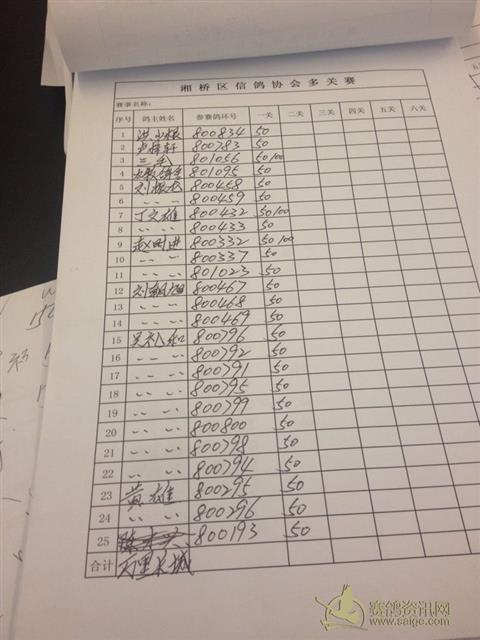 湘桥区信鸽协会多关赛
赛事名称：
序号 鸽主姓名 参赛鸽环号 一关 二关 三关 四关 五关 六关
1 800834 50
2 800783 50
3 三毛 801056 50/100
4 801095 50
5 刘振龙 800458 50
6 〃 〃 800459 50
7 丁文雄 800432 50/100
8 〃 〃 800433 50
9 赵时进 800332 50/100
10 〃 〃 800337 50
11 〃 〃 801023 50
12 800467 50
13 〃 〃 800468 50
14 〃 〃 800469 50
15 吴礼和 800796 50
16 〃 〃 800792 50
17 〃 〃 800791 50
18 〃 〃 800795 50
19 〃 〃 800799 50
20 〃 〃 800800 50
21 〃 〃 800798 50
22 〃 〃 800794 50
23 黄雄 800295 50
24 〃 〃 800296 50
25 800193 50
合计 万里长城
赛鸽资讯网
www.saige.com